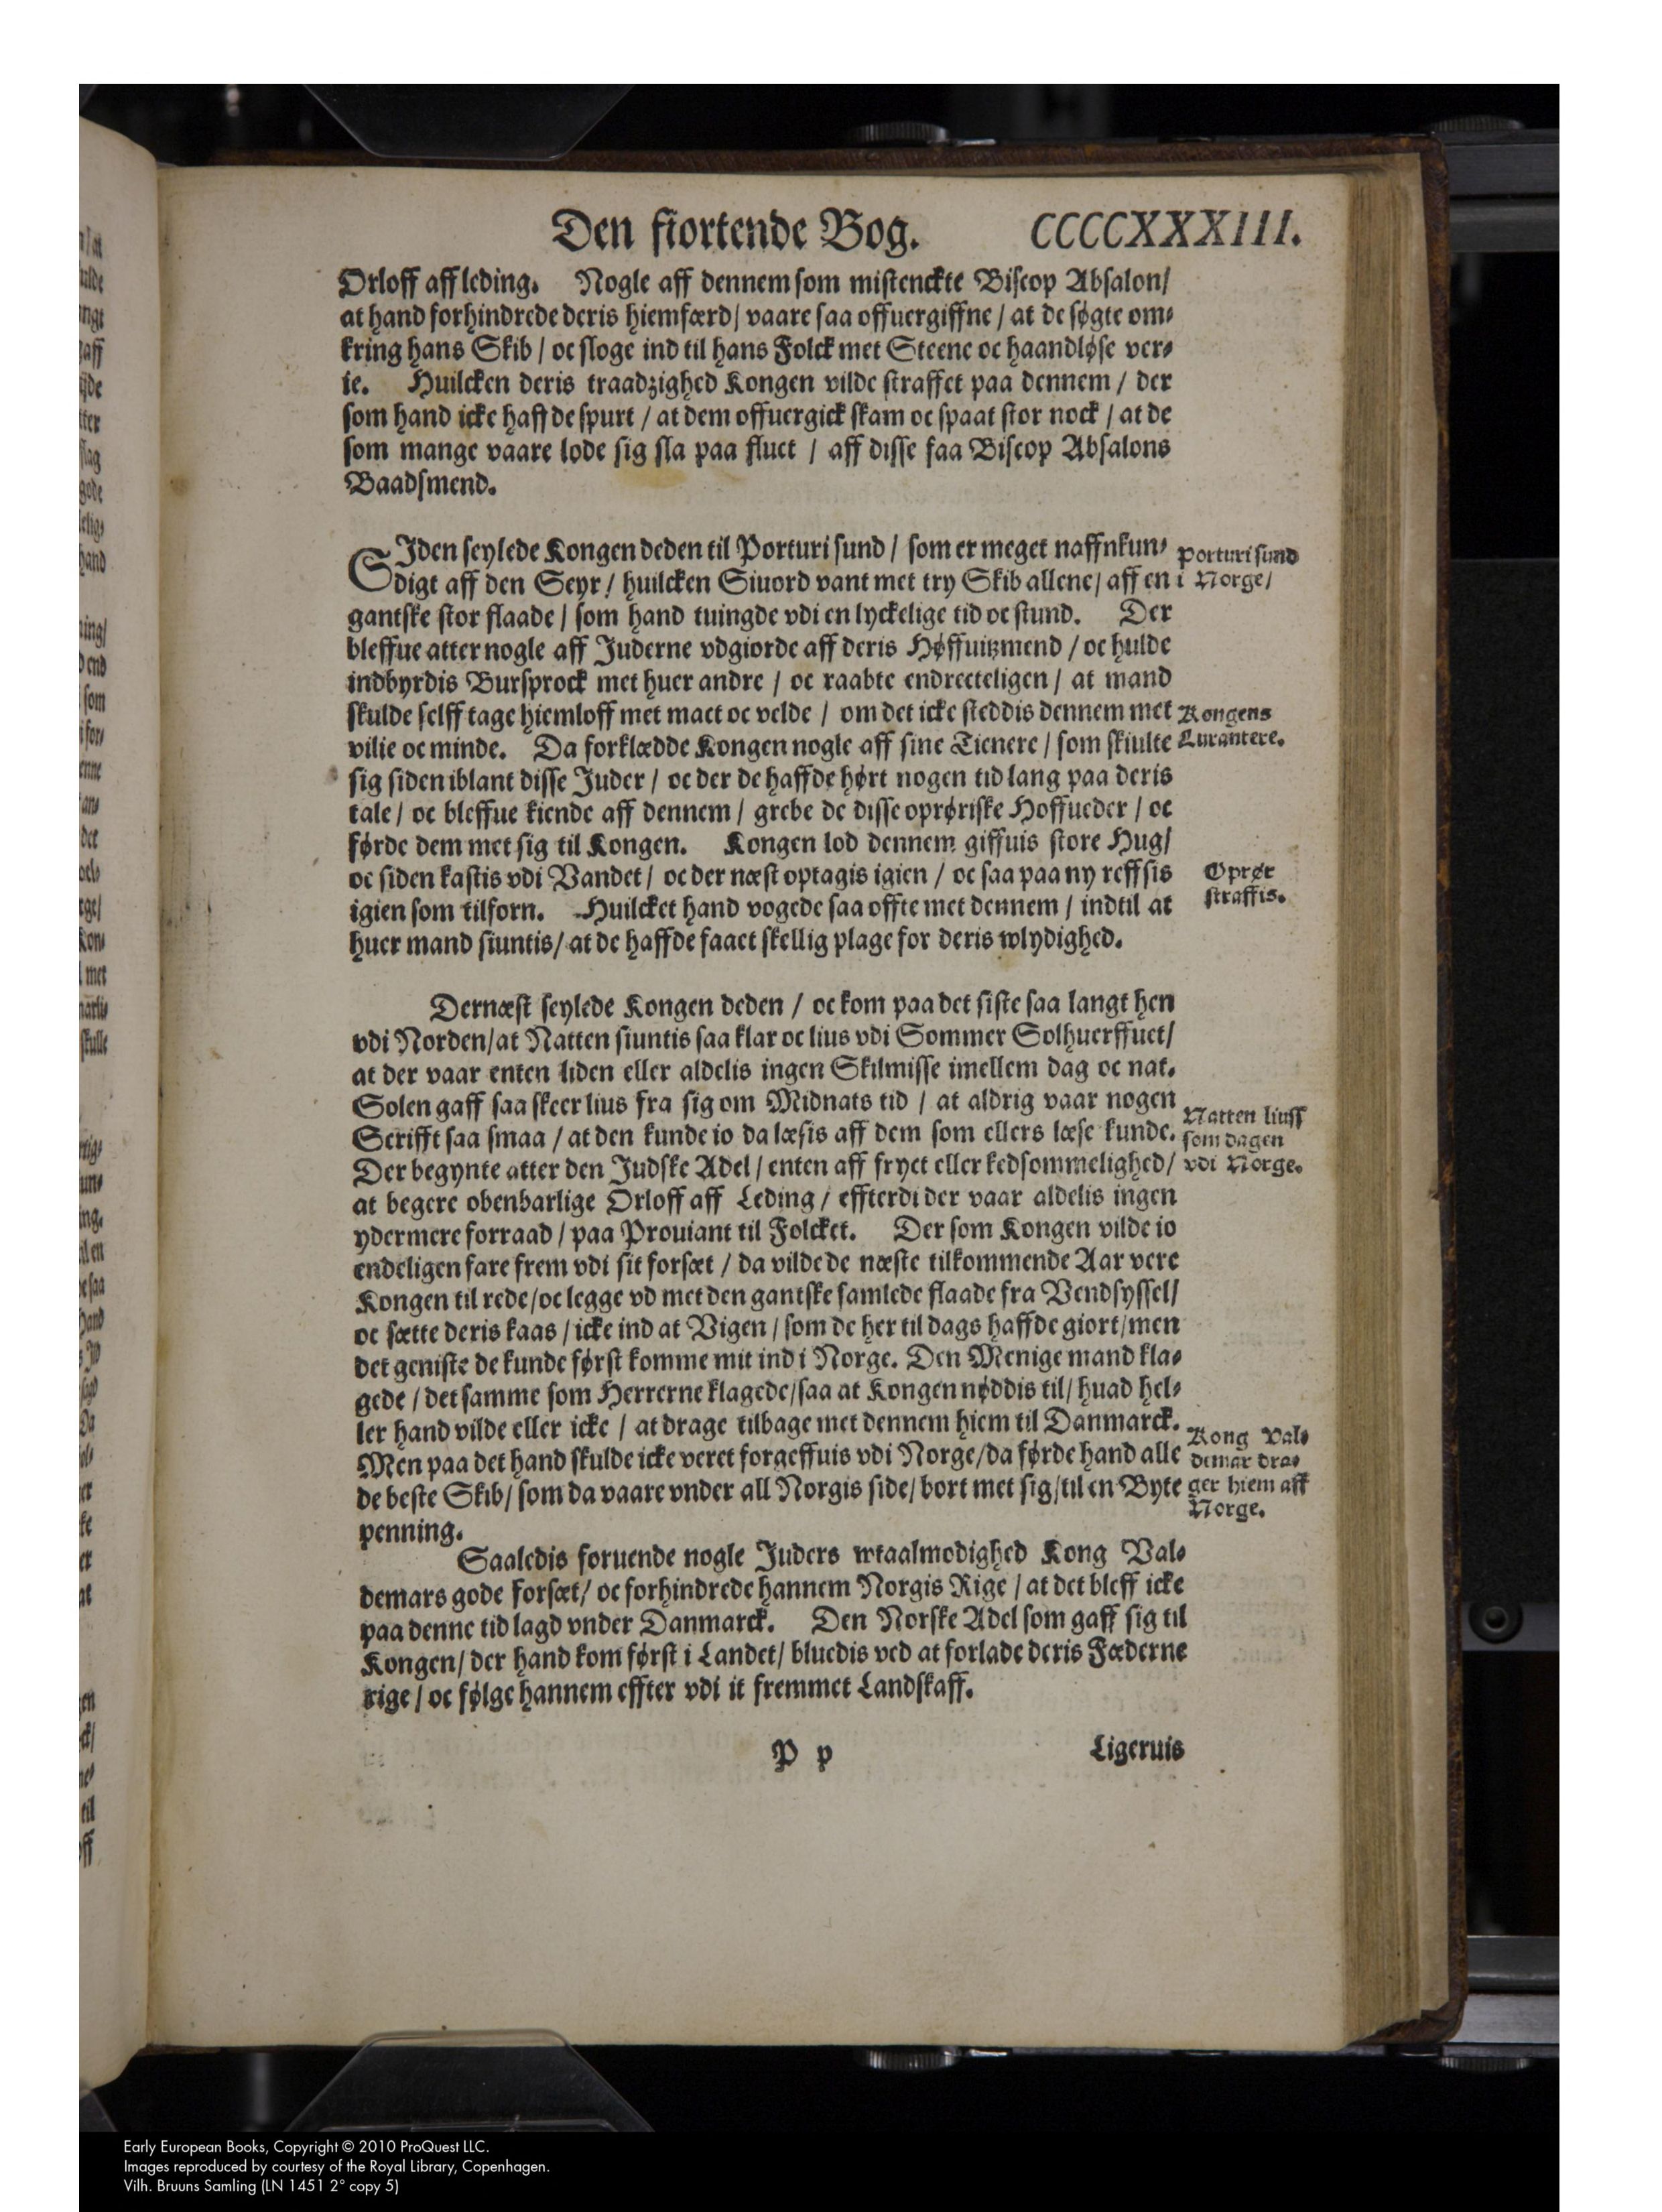 Den fiortende Bog. CCCCXXXIII.
Orloff aff leding. Nogle aff dennem som mistenckte Biscop Absalon/
at hand forhindrede deris hiemfærd/ vaare saa offuergiffne / at de søgte om⸗
kring hans Skib / oc sloge ind til hans Folck met Steene oc haandløse ver⸗
ie. Huilcken deris traadzighed Kongen vilde straffet paa dennem / der
som hand icke hafft de spurt / at dem offuergick skam oc spaat stor nock / at de
som mange vaare lode sig sla paa fluct / aff disse faa Biscop Absalons
Baadsmend.
SIden seylede Kongen deden til Porturi sund / som er meget naffnkun⸗
digt aff den Seyr / huilcken Siuord vant met try Skib allene/ aff en
Porturi sund
i Norge/
gantske stor flaade / som hand tuingde vdi en lyckelige tid oc stund. Der
bleffue atter nogle aff Juderne vdgiorde aff deris Høffuitzmend / oc hulde
indbyrdis Bursprock met huer andre / oc raabte endrecteligen / at mand
skulde selff tage hiemloff met mact oc velde / om det icke steddis dennem met
vilie oc minde. Da forklædde Kongen nogle aff sine Tienere / som skiulte
Kongens
Lurantere.
sig siden iblant disse Juder / oc der de haffde hørt nogen tid lang paa deris
tale / oc bleffue kiende aff dennem / grebe de disse oprøriske Hoffueder / oc
førde dem met sig til Kongen. Kongen lod dennem giffuis store Hug/
oc siden kastis vdi Vandet / oc der næst optagis igien / oc saa paa ny reffsis
igien som tilforn. Huilcket hand vogede saa offte met dennem / indtil at
Oprør
straffis.
huer mand siuntis/ at de haffde faaet skellig plage for deris wlydighed.
Dernæst seylede Kongen deden / oc kom paa det siste saa langt hen
vdi Norden/ at Natten siuntis saa klar oc lius vdi Sommer Solhuerffuet/
at der vaar enten liden eller aldelis ingen Skilmisse imellem dag oc nat.
Solen gaff saa skeer lius fra sig om Midnats tid / at aldrig vaar nogen
Scrifft saa smaa / at den kunde io da læsis aff dem som ellers læse kunde.
Der begynte atter den Judske Adel / enten aff fryct eller kedsommelighed/
Natten liuss
som dagen
vdi Norge.
at begere obenbarlige Orloff aff Leding / effterdi der vaar aldelis ingen
ydermere forraad / paa Prouiant til Folcket. Der som Kongen vilde io
endeligen fare frem vdi sit forsæt / da vilde de næste tilkommende Aar vere
Kongen til rede/ oc legge vd met den gantske samlede flaade fra Vendsyssel/
oc sætte deris kaas / icke ind at Vigen / som de her til dags haffde giort/ men
det geniste de kunde først komme mit ind i Norge. Den Menige mand kla⸗
gede / det samme som Herrerne klagede/ saa at Kongen nøddis til/ huad hel⸗
ler hand vilde eller icke / at drage tilbage met dennem hiem til Danmarck.
Men paa det hand skulde icke veret forgeffuis vdi Norge/ da førde hand alle
de beste Skib/ som da vaare vnder all Norgis side/ bort met sig/ til en Byte
penning.
Kong Val⸗
demar dra⸗
ger hiem aff
Norge.
Saaledis foruende nogle Juders wtaalmodighed Kong Val⸗
demars gode forsæt/ oc forhindrede hannem Norgis Rige / at det bleff icke
paa denne tid lagd vnder Danmarck. Den Norske Adel som gaff sig til
Kongen/ der hand kom først i Landet/ bluedis ved at forlade deris Fæderne
rige / oc følge hannem effter vdi it fremmet Landskaff.
P p Ligeruis
Early European Books, Copyright © 2010 ProQuest LLC.
Images reproduced by courtesy of the Royal Library, Copenhagen.
Vilh. Bruuns Samling (LN 1451 2° copy 5)